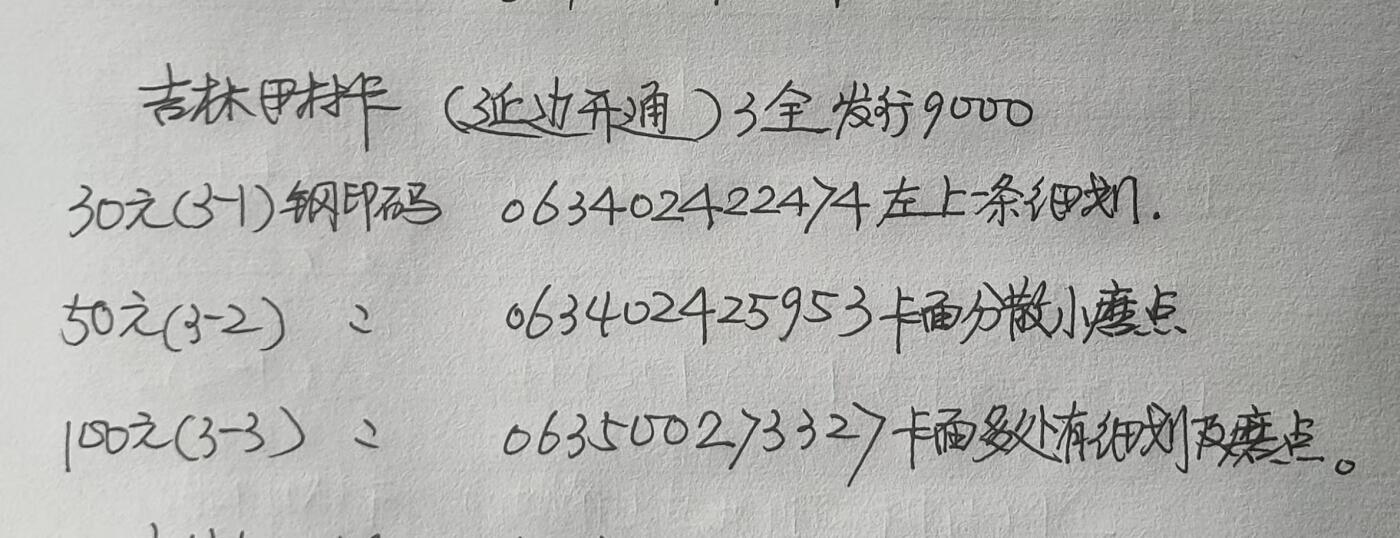 吉林田村卡（延边开通）3全发行9000
30元(3-1)钢印码 063402422474左上一条细划.
50元(3-2) 〃 063402425953卡面分散小磨点
100元(3-3) 〃 063500273327卡面多处有细划及磨点。